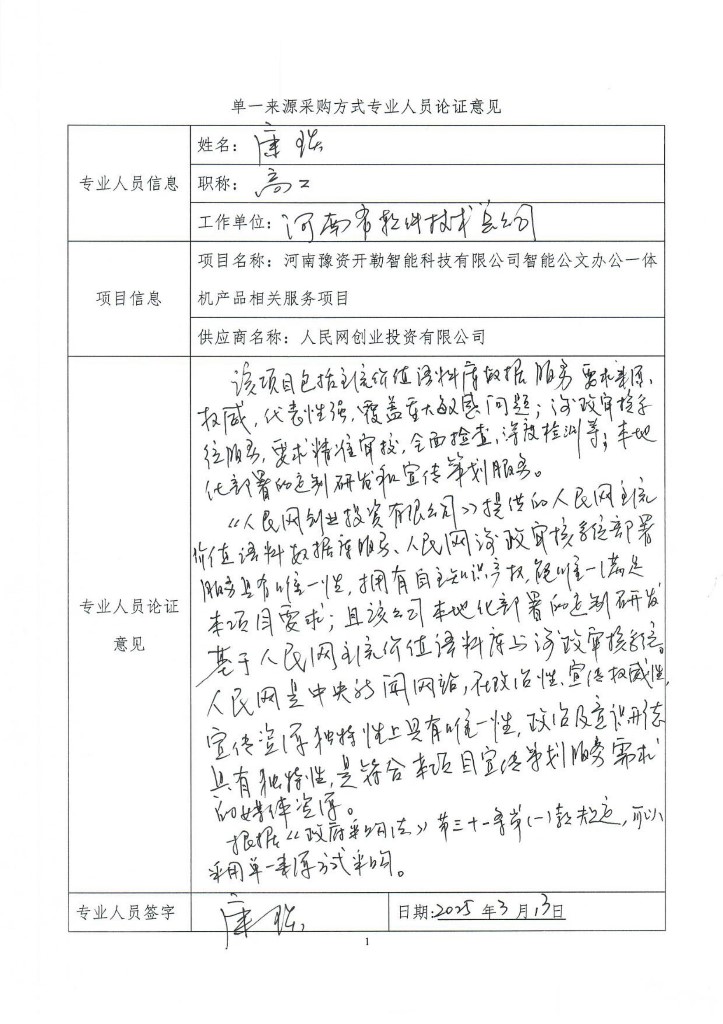 单一来源采购方式专业人员论证意见
专业人员信息
姓名：康
职称：高工
工作单位：河南省软件技术总公司
项目信息
项目名称：河南豫资开勒智能科技有限公司智能公文办公一体
机产品相关服务项目
供应商名称：人民网创业投资有限公司
专业人员论证
意见
该项目包括主流价值语料库数据服务要求来源
权威，代表性强，覆盖重大敏感问题；涉政审核系
统服务，要求精准审校，全面检查，深度检测等；本地
化部署的定制研发和宣传策划服务。
《人民网创业投资有限公司》提供的人民网主流
价值语料数据库服务、人民网涉政审核系统部署
服务具有唯一性，拥有自主知识产权，能唯一满足
本项目要求；且该公司本地化部署的定制研发
基于人民网主流价值语料库与涉政审核系统。
人民网是中央新闻网站，在政治性、宣传权威性，
宣传资源独特性上具有唯一性，政治及意识形态
具有独特性，是符合本项目宣传策划服务需求
的媒体资源。
根据《政府采购法》第三十一条第(一)款规定，可以
采用单一来源方式采购。
专业人员签字
康
日期：2025年3月13日
1